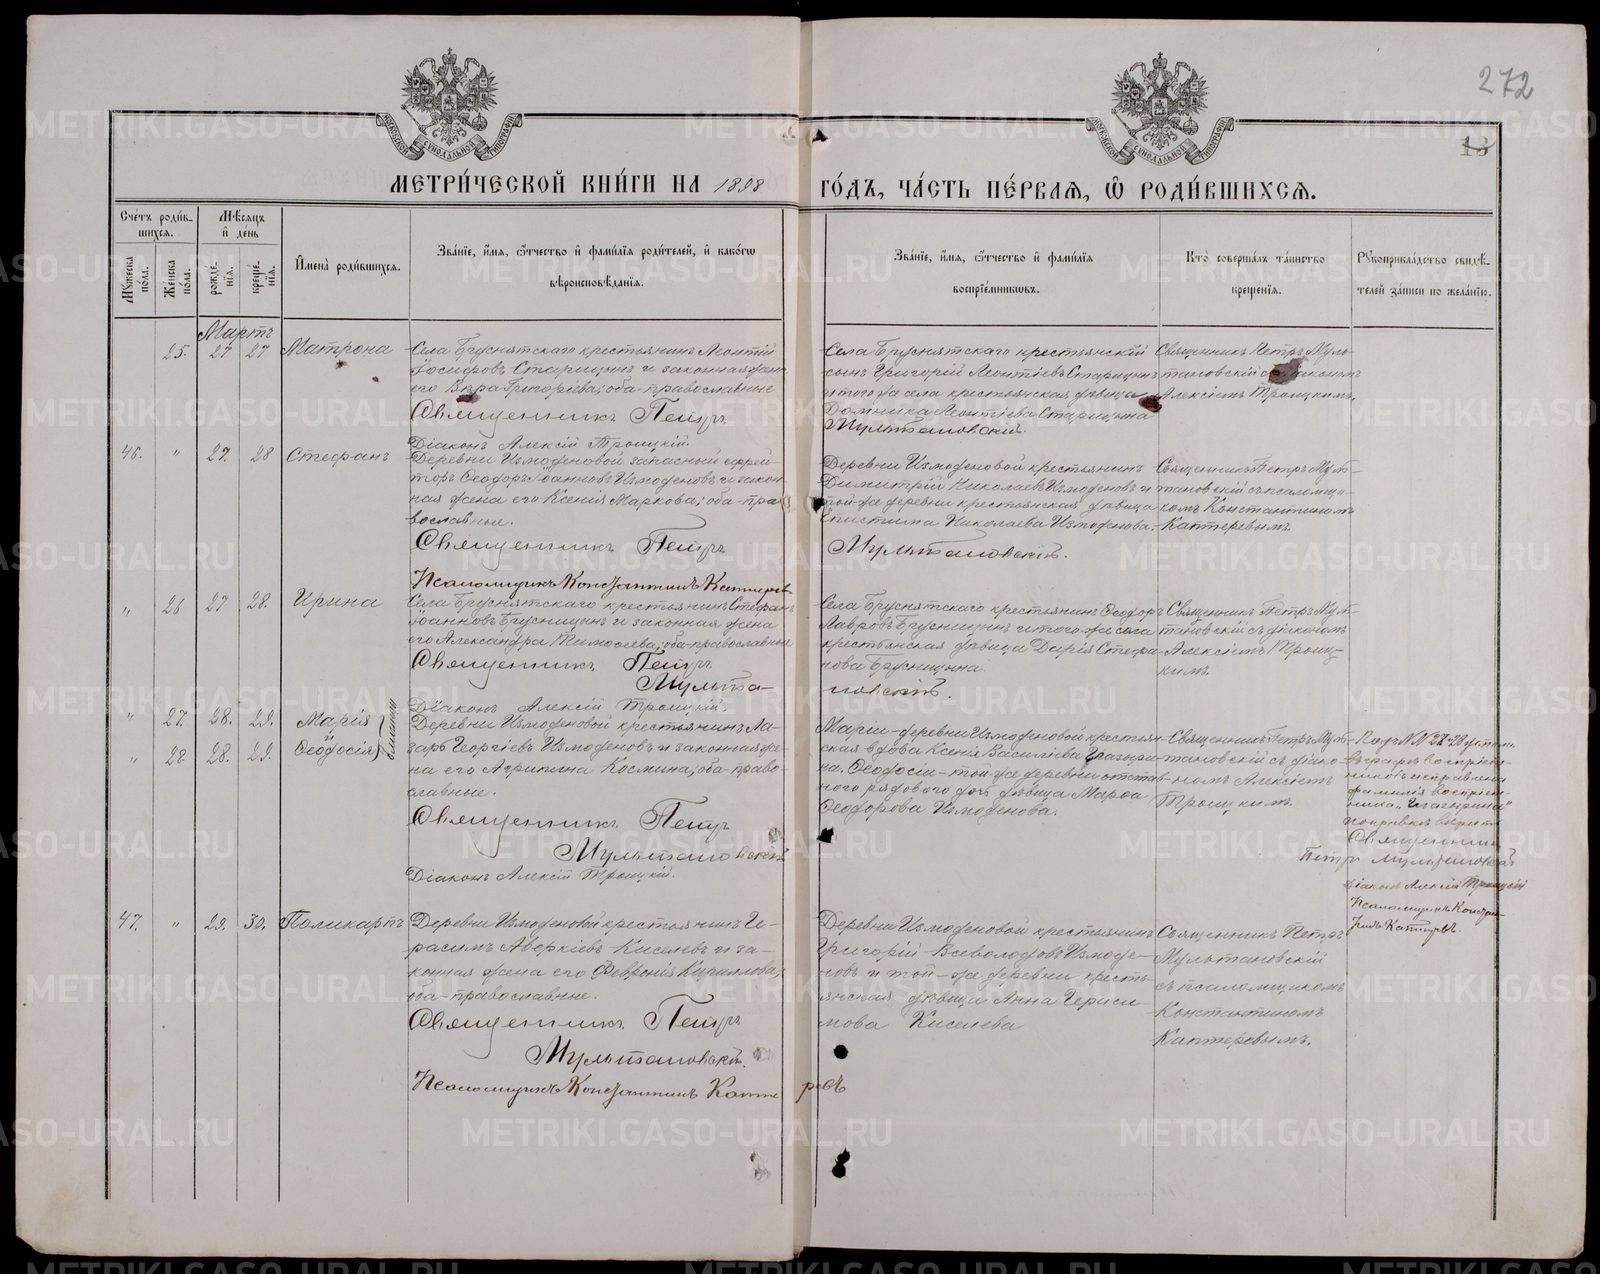 272
13
МЕТРИ́ЧЕСКОЙ КНИ́ГИ НА 1898 ГО́ДЪ, ЧА́СТЬ ПЕ́РВАЯ, Ѡ РОДИ́ВШИХСЯ.
Сче́тъ роди́в-
шихся.
Мѣ́сяцъ
и де́нь
Мꙋжеска
по́ла.
Же́нска
по́ла.
рожде́-
нїя.
креще́-
нїя.
И҆мена̀ роди́вшихся.
Зва́нїе, и҆́мя, ѻ҆́тчество и҆ фами́лїя роди́телей, и҆ како́гѡ
вѣроисповѣ́данїя.
Зва́нїе, и҆́мя, ѻ҆́тчество и҆ фами́лїя
воспрїе́мниковъ.
Кто̀ соверша́лъ та́инство
креще́нїя.
Рꙋкоприкла́дство свидѣ́-
телей за́писи по жела́нїю.
Мартъ
25. 27 27 Матрона
Села Бруснятскаго крестьянинъ Леонтій
Іосифовъ Старицынъ и законная жена
его Вѣра Григоріева; оба православные
Священникъ Петръ
Мультановскій.
Діаконъ Алексій Троицкій.
Села Бруснятскаго крестьянскій
сынъ Григорій Леонтіевъ Старицынъ
и того же села крестьянская дѣвица
Домника Леонтіева Старицына
Священникъ Петръ Муль-
тановскій съ діакономъ
Алексіемъ Троицкимъ.
46. " 27. 28 Стефанъ
Деревни Измоденовой запасный ефрей-
торъ Ѳеодоръ Іоанновъ Измоденовъ и закон-
ная жена его Ксенія Маркова; оба пра-
вославные.
Священникъ Петръ
Мультановскій.
Псаломщикъ Константинъ Каптеревъ
Деревни Измоденовой крестьянинъ
Димитрій Николаевъ Измоденовъ и
той-же деревни крестьянская дѣвица
Епистима Николаева Измоденова.
Священникъ Петръ Муль-
тановскій съ псаломщи-
комъ Константиномъ
Каптеревымъ.
" 26 27 28. Ирина
Села Бруснятскаго крестьянинъ Стефанъ
Іоанновъ Брусницынъ и законная жена
его Александра Тимоѳеева; оба православные
Священникъ Петръ
Мульта-
новскій.
Діаконъ Алексій Троицкій.
Села Бруснятскаго крестьянинъ Ѳеодоръ
Лавровъ Брусницынъ и того-же села
крестьянская дѣвица Дарія Стефа-
нова Брусницына.
Священникъ Петръ Муль-
тановскій съ діакономъ
Алексіемъ Троиц-
кимъ.
" 27. 28. 29. Марія
и
" 28. 28. 29. Ѳеодосія
близнецы
Деревни Измоденовой крестьянинъ Ла-
зарь Георгіевъ Измоденовъ и законная же-
на его Агрипина Космина; оба право-
славные.
Священникъ Петръ
Мультановскій
Діаконъ Алексій Троицкій.
Маріи - деревни Измоденовой крестьян-
ская вдова Ксенія Василіева Глагори-
на. Ѳеодосіи - той-же деревни отстав-
ного рядового дочь дѣвица Марѳа
Ѳеодорова Измоденова.
Священникъ Петръ Муль-
тановскій съ діако-
номъ Алексіемъ
Троицкимъ.
Подъ №№ 27-28
въ графѣ воспріем-
никовъ исправлена
фамилія воспріем-
ника
поправкѣ вѣрить
Священникъ
Петръ Мультановскій
Діаконъ Алексій Троицкій
Псаломщикъ Констан-
тинъ Каптеревъ.
47. " 29. 30. Поликарпъ
Деревни Измоденовой крестьянинъ Ге-
расимъ Аверкіевъ Киселевъ и за-
конная жена его Февронія Кириллова;
оба-православные.
Священникъ Петръ
Мультановскій.
Псаломщикъ Константинъ Каптеревъ
Деревни Измоденовой крестьянинъ
Григорій Всеволодовъ Измоде-
новъ и той-же деревни кресть-
янская дѣвица Анна Гераси-
мова Киселева
Священникъ Петръ
Мультановскій
съ псаломщикомъ
Константиномъ
Каптеревымъ.
METRIKI.GASO-URAL.RU